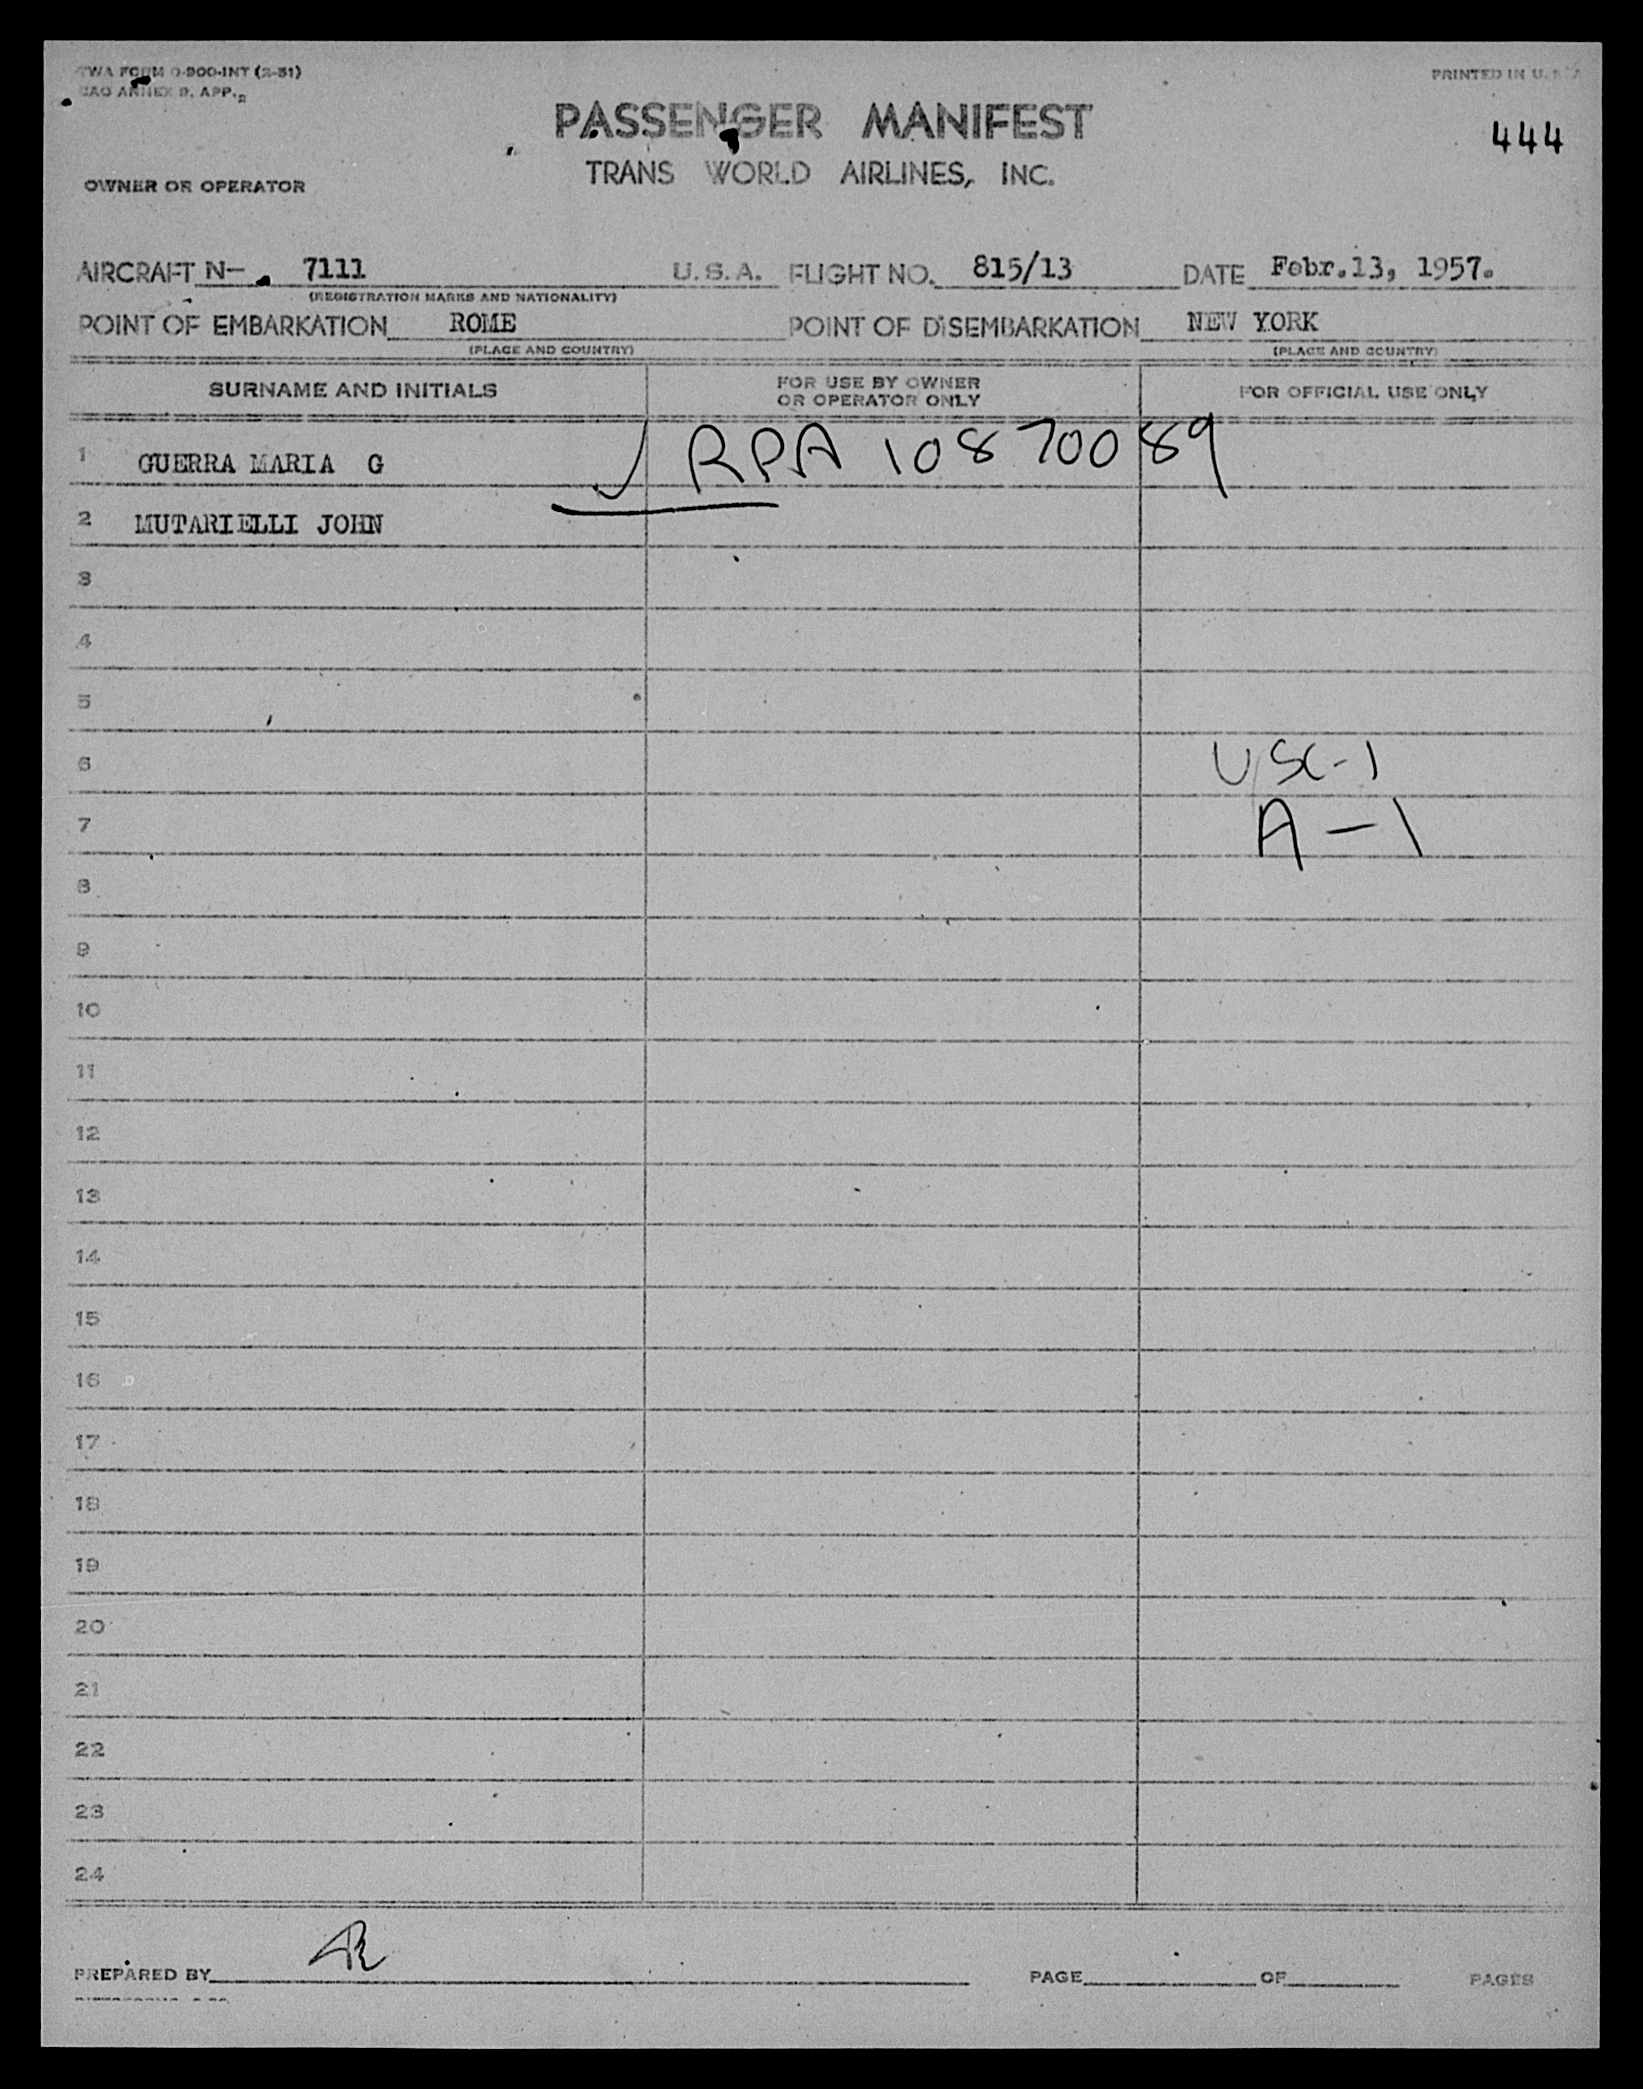 TWA FORM O-900-INT (2-51)
PRINTED IN U.S.A.
ICAO ANNEX 9, APP.
PASSENGER MANIFEST
444
TRANS WORLD AIRLINES, INC.
OWNER OR OPERATOR
AIRCRAFT N- 7111 U.S.A. FLIGHT NO. 815/13 DATE Febr.13, 1957.
(REGISTRATION MARKS AND NATIONALITY)
POINT OF EMBARKATION ROME POINT OF DISEMBARKATION NEW YORK
(PLACE AND COUNTRY) (PLACE AND COUNTRY)
SURNAME AND INITIALS FOR USE BY OWNER OR OPERATOR ONLY FOR OFFICIAL USE ONLY
1 GUERRA MARIA G ✓ RPA 10870089
2 MUTARIELLI JOHN
3
4
5
6 USC-1
7 A-1
8
9
10
11
12
13
14
15
16
17
18
19
20
21
22
23
24
PREPARED BY PAGE OF PAGES